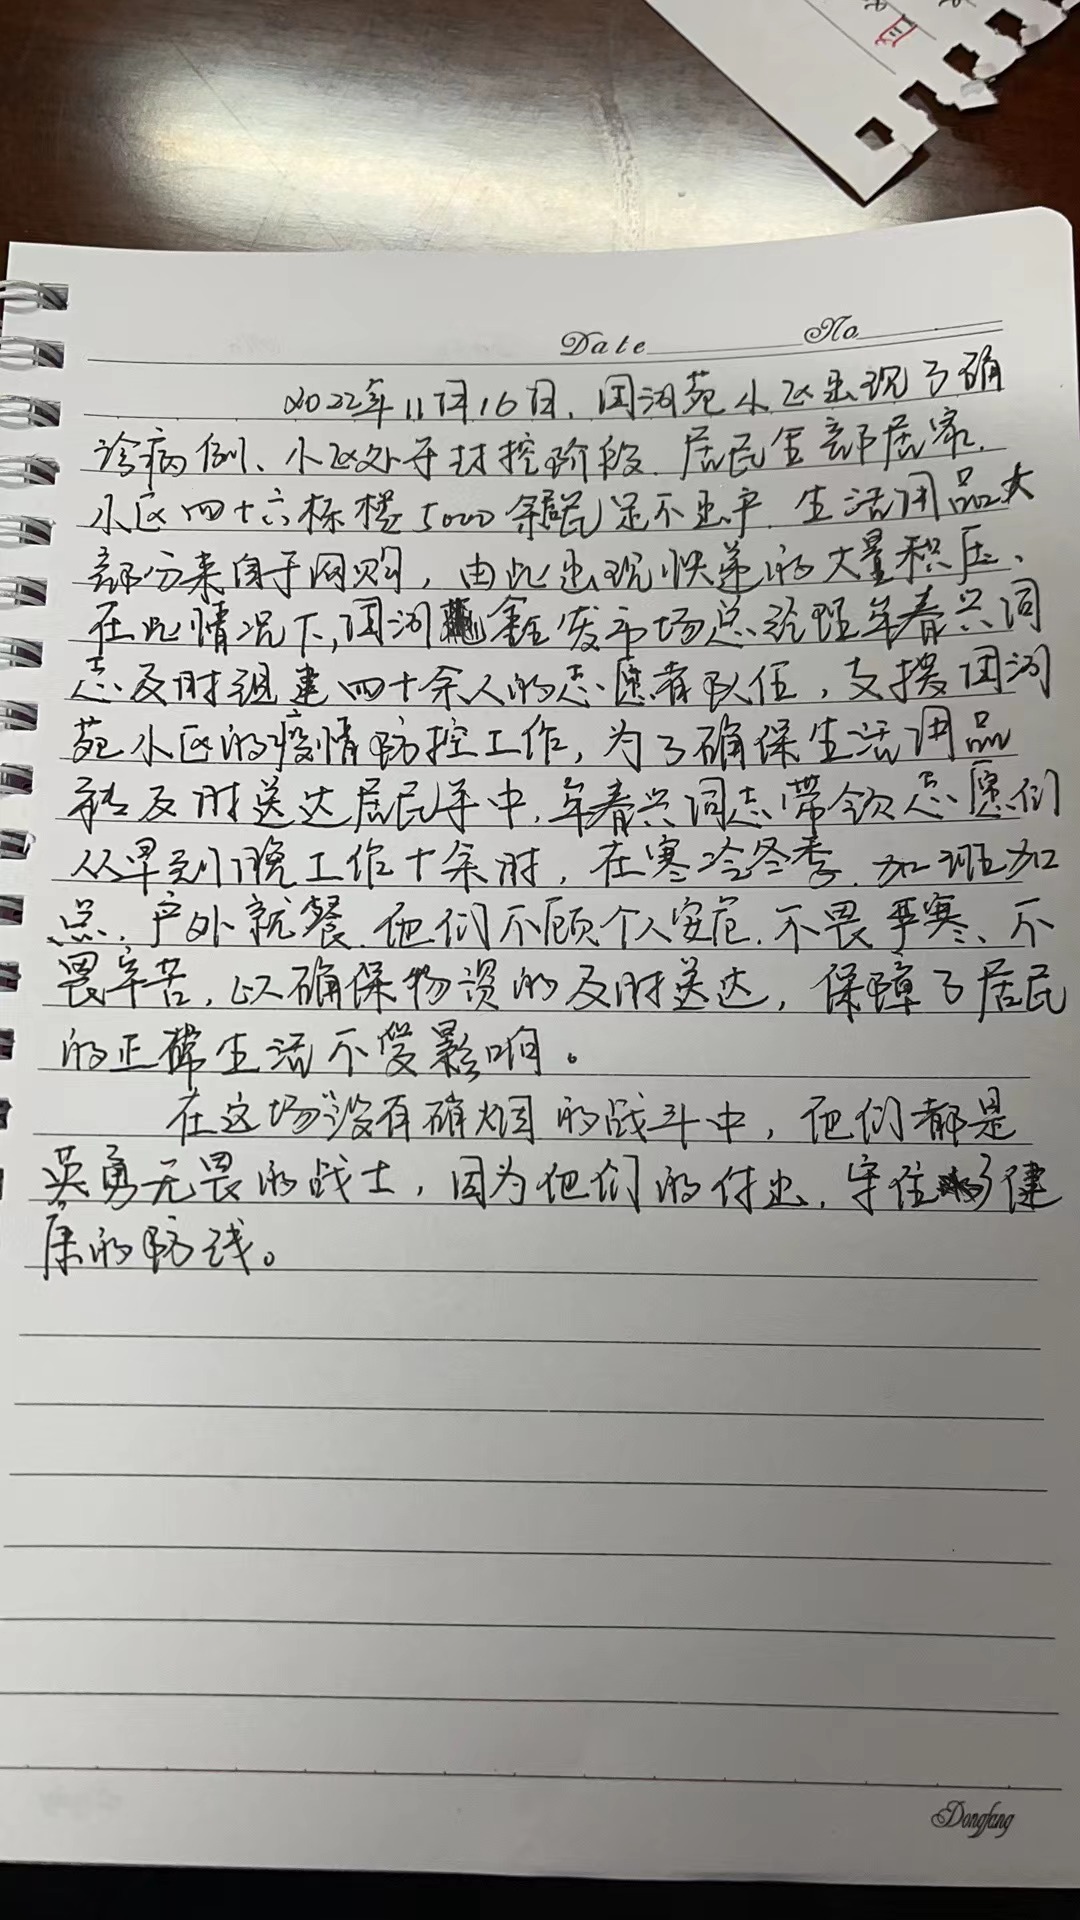 Date No
2022年11月16日，国润苑小区出现了确
诊病例、小区处于封控阶段．居民全部居家．
小区四十六栋楼5000余居民足不出户．生活用品大
部分来自于网购，由此出现快递的大量积压、
在此情况下，国润鑫发市场总经理年春兴同
志及时组建四十余人的志愿者队伍，支援国润
苑小区的疫情防控工作，为了确保生活用品
及时送达居民手中，年春兴同志带领志愿们
从早到晚工作十余时，在寒冷冬季．加班加
点，户外就餐．他们不顾个人安危．不畏严寒、不
畏辛苦，以确保物资的及时送达，保障了居民
的正常生活不受影响。
在这场"没有硝烟的战斗中，他们都是
英勇无畏的战士，因为他们的付出，守住了健
康的防线。
Dongfang